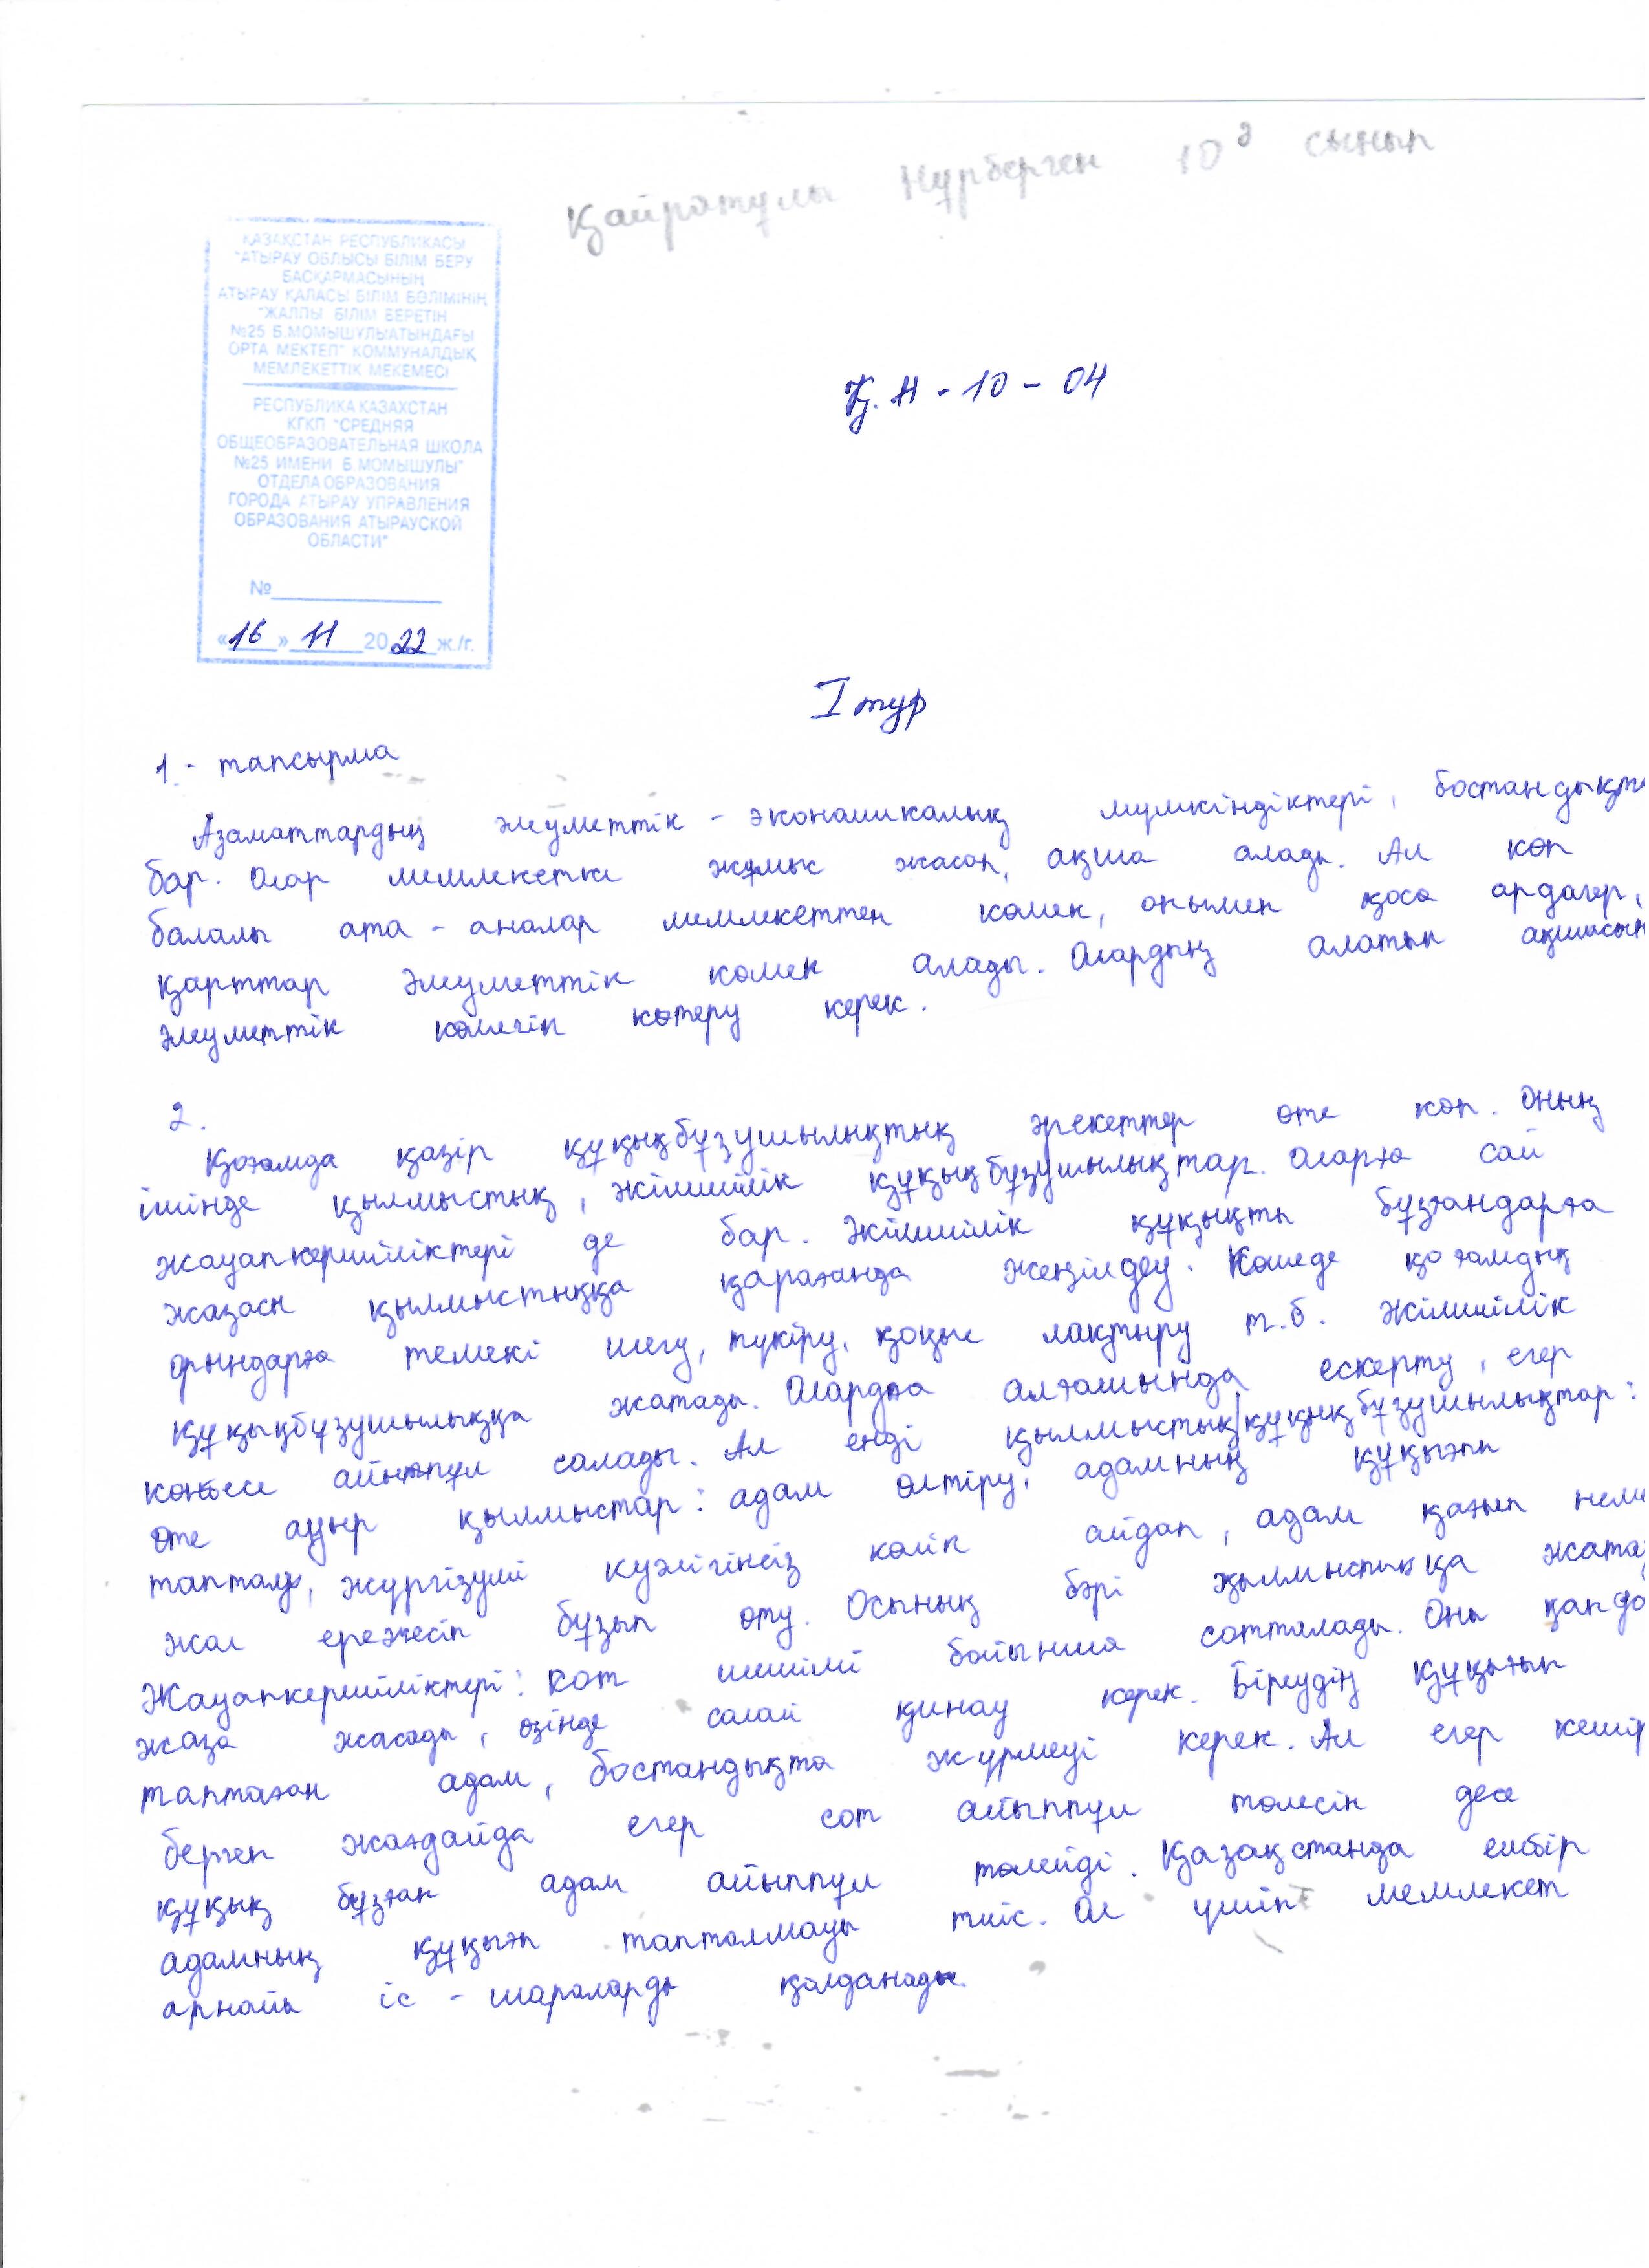 Қайратұлы Нұрберген 10 ə сынып
ҚАЗАҚСТАН РЕСПУБЛИКАСЫ
"АТЫРАУ ОБЛЫСЫ БІЛІМ БЕРУ
БАСҚАРМАСЫНЫҢ
АТЫРАУ ҚАЛАСЫ БІЛІМ БӨЛІМІНІҢ
"ЖАЛПЫ БІЛІМ БЕРЕТІН
№25 Б.МОМЫШУЛЫАТЫНДАҒЫ
ОРТА МЕКТЕП" КОММУНАЛДЫҚ
МЕМЛЕКЕТТІК МЕКЕМЕСІ
РЕСПУБЛИКА КАЗАХСТАН
КГКП "СРЕДНЯЯ
ОБЩЕОБРАЗОВАТЕЛЬНАЯ ШКОЛА
№25 ИМЕНИ Б.МОМЫШУЛЫ"
ОТДЕЛА ОБРАЗОВАНИЯ
ГОРОДА АТЫРАУ УПРАВЛЕНИЯ
ОБРАЗОВАНИЯ АТЫРАУСКОЙ
ОБЛАСТИ"
№
«16» 11 2022 ж./г.
Қ.Н - 10 - 04
I тур
1 - тапсырма
Азаматтардың әлеуметтік - экономикалық мүмкіндіктері, бостандықта
бар. Олар мемлекетке жұмыс жасап, ақша алады. Ал көп
балалы ата - аналар мемлекеттен көмек, онымен қоса ардагер,
қарттар әлеуметтік көмек алады. Олардың алатын ақшасын
әлеуметтік көмегін көтеру керек.
2.
Қоғамда қазір құқықбұзушылықтық әрекеттер өте көп. Оның
ішінде қылмыстық, әкімшілік құқықбұзушылықтар. Оларға сай
жауапкершіліктері де бар. Әкімшілік құқықты бұзғандарға
жазасы қылмыстыққа қарағанда жеңілдеу. Көшеде қоғамдық
орындарға темекі шегу, түкіру, қоқыс лақтыру т.б. әкімшілік
құқықбұзушылыққа жатады. Оларға алғашында ескерту, егер
көнбесе айыппұл салады. Ал енді қылмыстық құқықбұзушылықтар:
өте ауыр қылмыстар: адам өлтіру, адамның құқығын
тапталу, жүргізуші куәлігінсіз көлік айдап, адам қағып неме
жол ережесін бұзып өту. Осының бәрі қылмыстыққа жатад
Жауапкершіліктері: сот шешімі бойынша сотталады. Оны қанда
жаза жасады, өзінде солай қинау керек. Біреудің құқығын
таптаған адам, бостандықта жүрмеуі керек. Ал егер кешір
берген жағдайда егер сот айыппұл төлесін десе
құқық бұзған адам айыппұл төлейді. Қазақстанда ешбір
адамның құқығы тапталмауы тиіс. Ол үшін мемлекет
арнайы іс - шараларды қолданады.